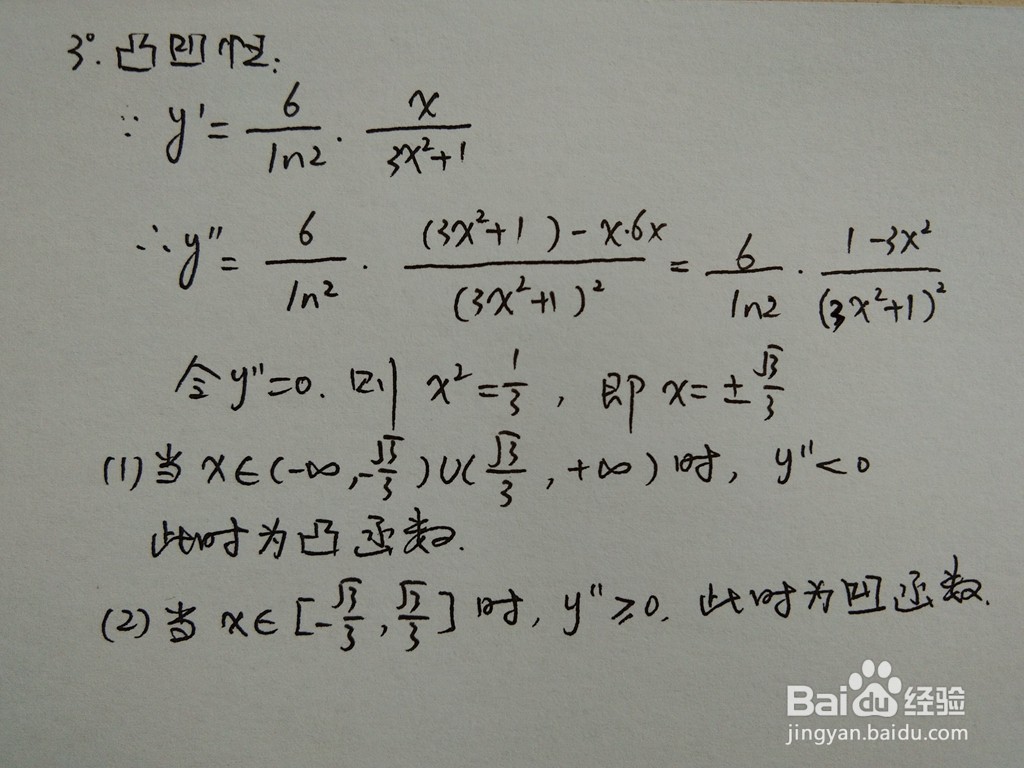 3°. 凸凹性:
∵ y' = 6/ln2 · x/(3x²+1)
∴ y'' = 6/ln2 · ((3x²+1)-x·6x)/(3x²+1)² = 6/ln2 · (1-3x²)/(3x²+1)²
令y''=0. 则 x²=1/3, 即 x=±√3/3
(1)当 x∈(-∞,-√3/3)∪(√3/3,+∞)时, y''<0
此时为凸函数.
(2)当 x∈[-√3/3,√3/3]时, y''≥0. 此时为凹函数.
Bai经验
jingyan.baidu.com